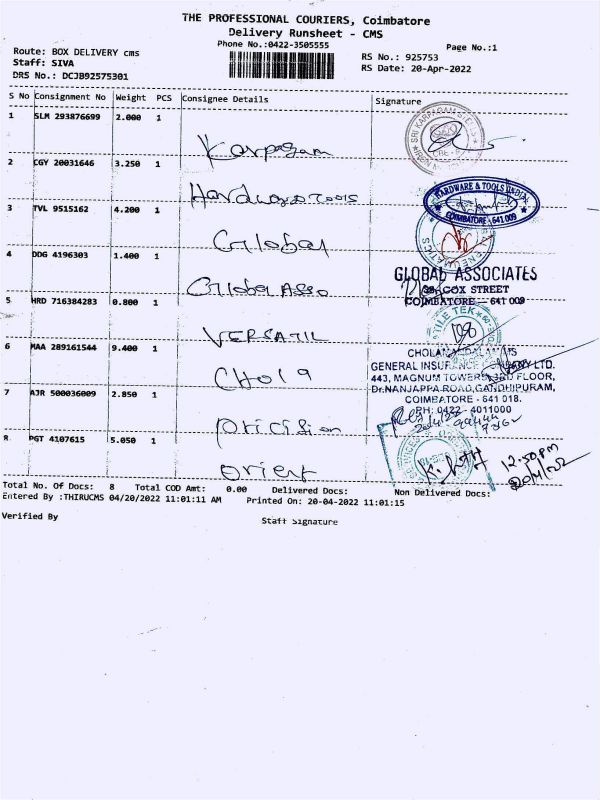 THE PROFESSIONAL COURIERS, Coimbatore
Delivery Runsheet - CMS
Phone No.:0422-3505555
Page No.:1
Route: BOX DELIVERY cms
Staff: SIVA
DRS No.: DCJB92575301
RS No.: 925753
RS Date: 20-Apr-2022
S No Consignment No Weight PCS Consignee Details Signature
1 SLM 293876699 2.000 1
Karpagam
2 CGY 20031646 3.250 1
Hardware Tools
HARDWARE & TOOLS INDIA
COIMBATORE - 641 009
3 TVL 9515162 4.200 1
Global
4 DDG 4196303 1.400 1
Global Asso
GLOBAL ASSOCIATES
COX STREET
COIMBATORE - 641 009
5 HRD 716384283 0.800 1
VERSATIL
6 MAA 289161544 9.400 1
CHOLA
GENERAL INSURANCE LTD.
443, MAGNUM TOWERS, 3RD FLOOR,
Dr.NANJAPPA ROAD, GANDHIPURAM,
COIMBATORE - 641 018.
PH: 0422 - 4011000
7 AJR 500036009 2.850 1
8 PGT 4107615 5.050 1
Orient
12.50PM
Total No. Of Docs: 8 Total COD Amt: 0.00 Delivered Docs: Non Delivered Docs:
Entered By :THIRUCMS 04/20/2022 11:01:11 AM Printed On: 20-04-2022 11:01:15
Verified By
Staff Signature